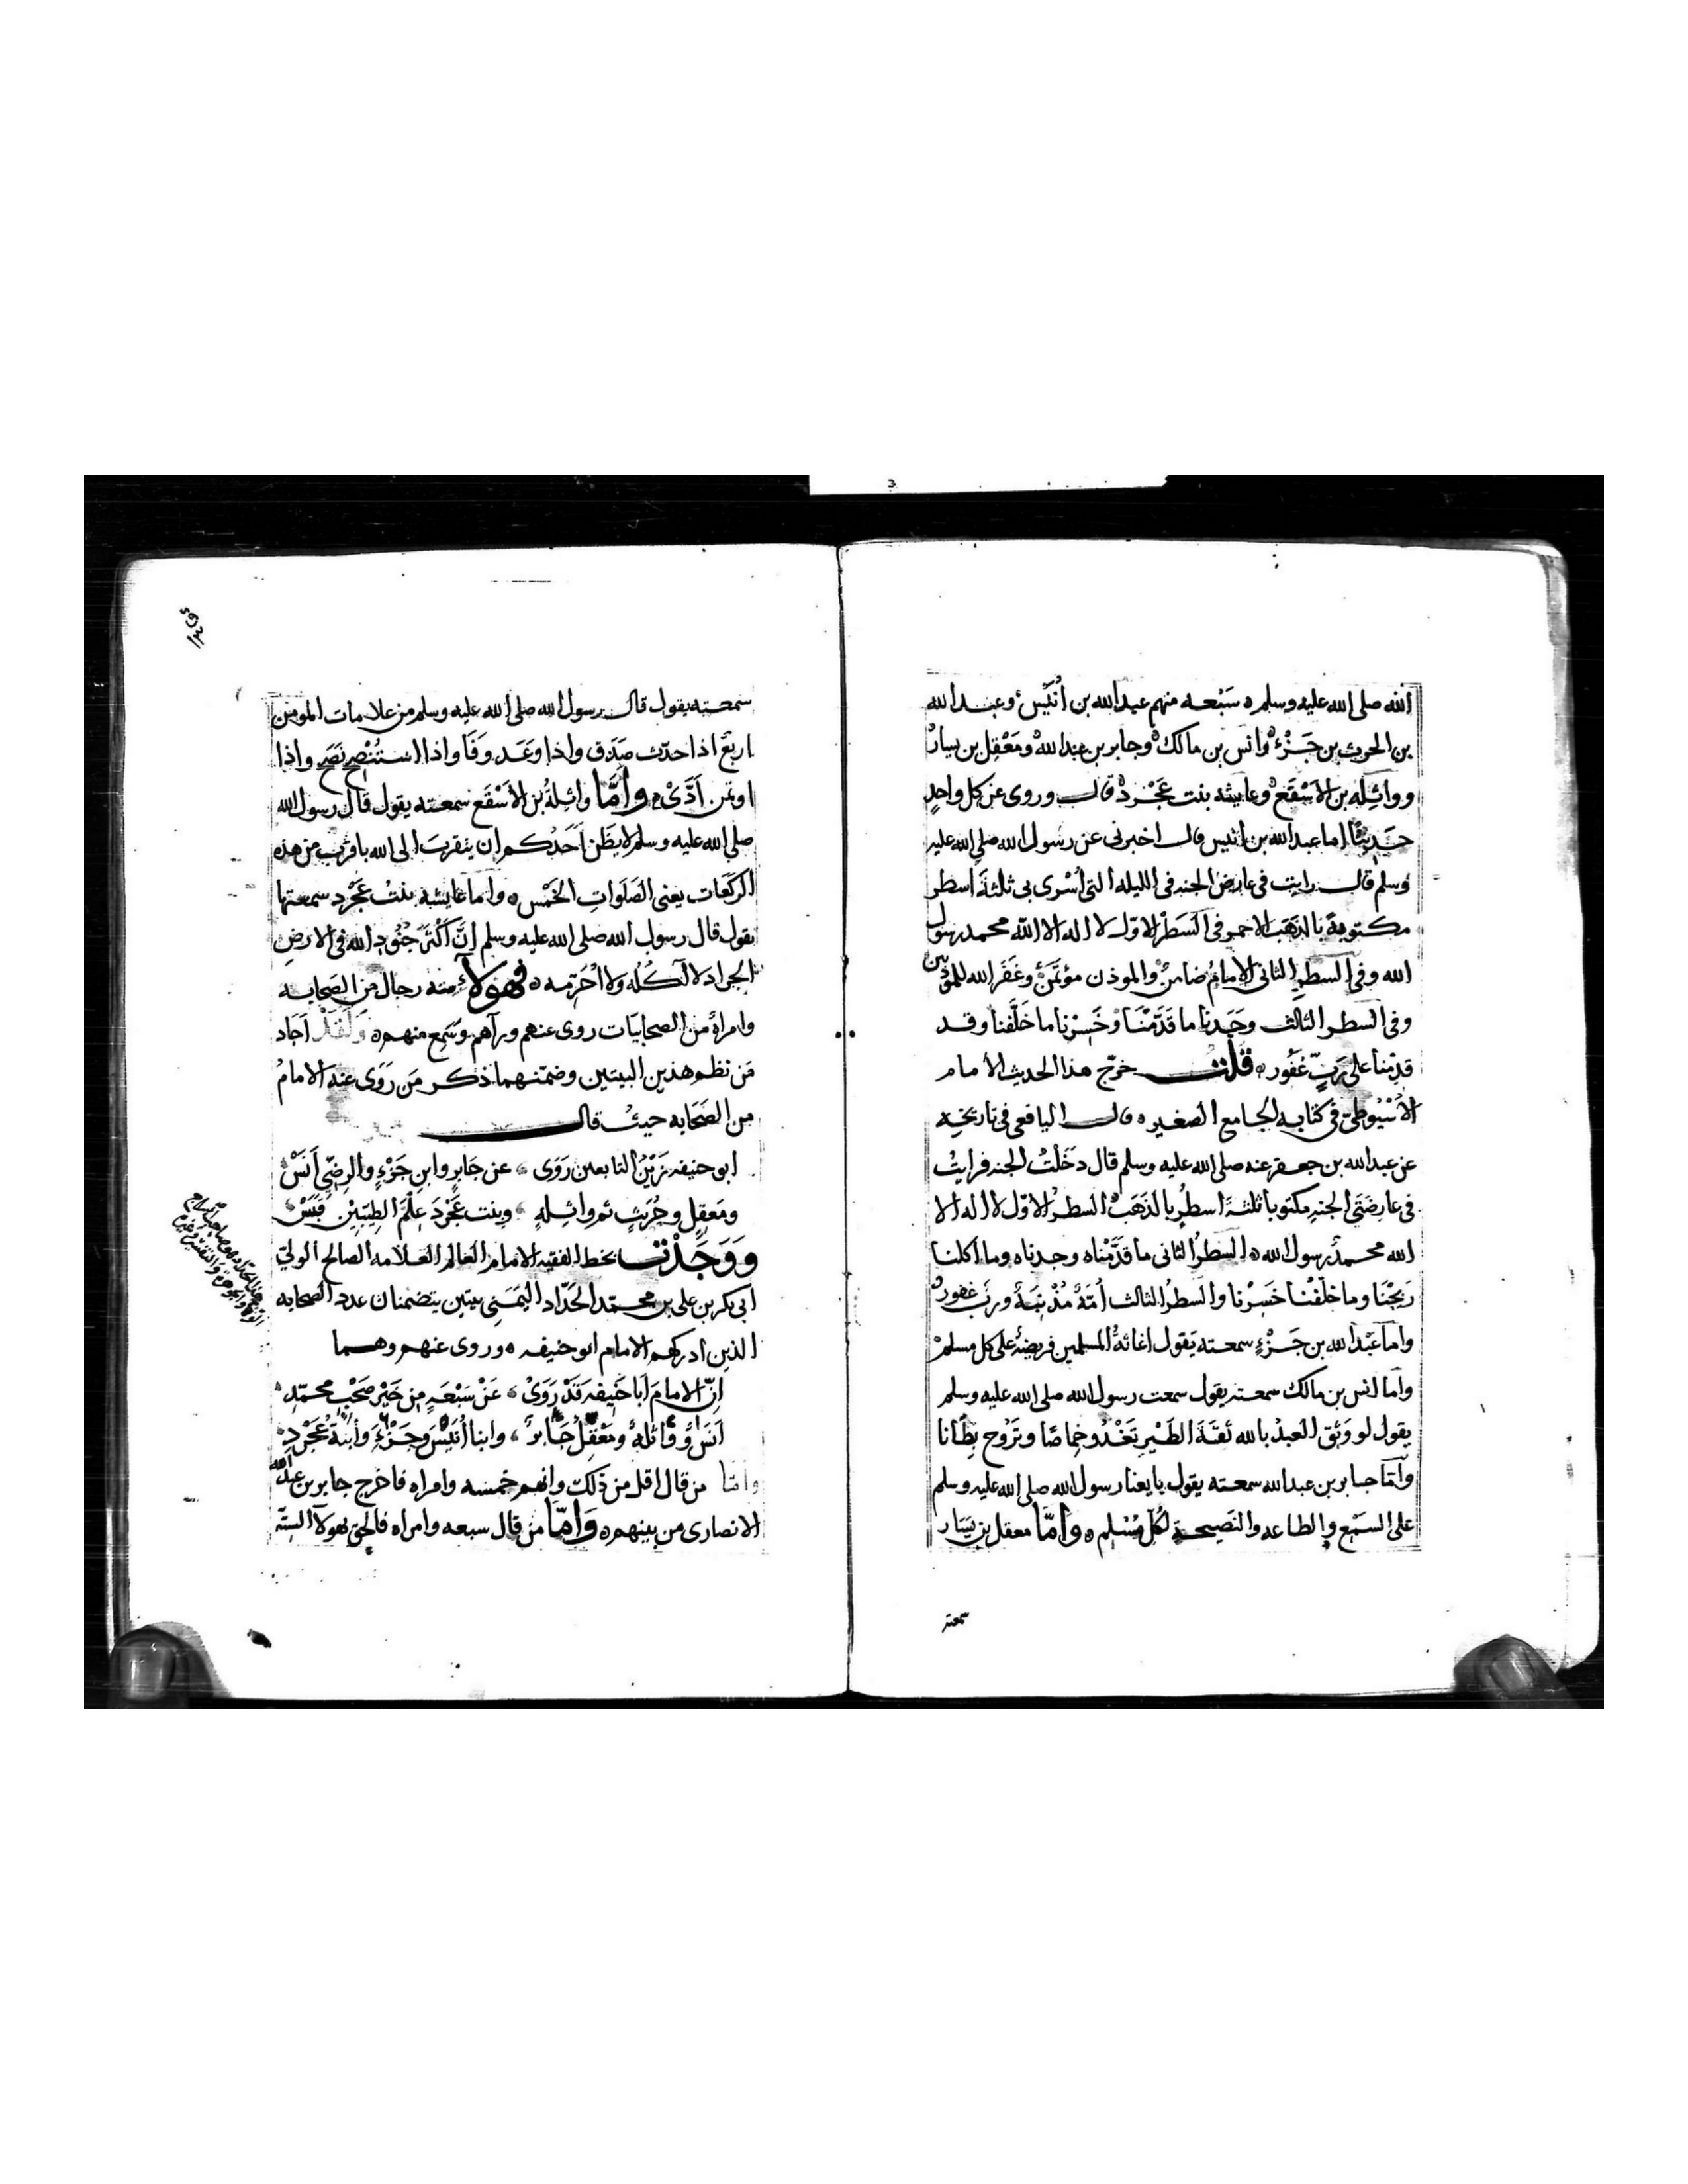 الله صلى الله عليه وسلم ه سَبْعه منهم عبد الله بن أُنَيْس وعبد الله
بن الحرث بن جَزْء وانس بن مالك وجابر بن عبد الله ومَعْقِل بن يسار
وواثِلة بن الاَسْقَع وعايشه بنت عَجْرَد قال وروى عن كل واحدٍ
حَديثًا اما عبد الله بن انيس قال اخبرنى عن رسول الله صلى الله عليه
وسلم قال رايت فى عارض الجنه فى الليله التى أُسْرى بى ثلثة اسطر
مكتوبة بالذهب الاحمر فى السَطرْ الاوّل لا اله الا الله محمد رسول
الله وفى السطرِ الثانى الامامُ ضامنٌ والموذن مؤتَمَنٌ وغَفَر الله للموذنين
وفى السطر الثالث وجَدنا ما قَدَّمْنَا وخَسِرْنا ما خَلَّفنا وقد
قدِمْنا على رَبٍّ غَفُور ه قلت خرّج هذا الحديث الامام
الاُسْيُوطىّ فى كتابه الجامع الصغير ه قال اليافعى فى تاريخه
عن عبد الله بن جعفر عنه صلى الله عليه وسلم قال دَخَلتُ الجنه فرايتُ
فى عارضَتَى الجنهِ مكتوبا ثلثةَ اسطُرٍ بالذهَب السطرُ الاوّل لا اله الا
الله محمدٌ رسول الله ه السطرُ الثانى ما قدَّمْناه وجدناه وما اكلنا
رَبِحْنَا وما خلفْنا خَسِرْنا والسطرُ الثالث أُمّةٌ مُذْنِبَةٌ وربٌ غفورٌ
واما عَبْد الله بن جَزْءٍ سمعته يَقول اغاثةُ المسلمين فريضةٌ على كل مسلم
واما انس بن مالك سمعته يقول سمعت رسول الله صلى الله عليه وسلم
يقول لو وَثِق العبدُ بالله ثقَةَ الطَيْرِ تَغْدُو خِماصًا وتَرُوح بِطَانا
وامّا جابر بن عبد الله سمعته يقول بايعنا رسول الله صلى الله عليه وسلم
على السَمْع والطاعه والنَصيحة لكُل مُسْلم ه وامّا معقل بن يَسَار
سمعته
سمعته يقول قال رسول الله صلى الله عليه وسلم من علامات المومن
اربعٌ اذا حدّث صَدَق واذا وَعَد وَفَا واذا استُنْصِح نَصَح واذا
اوتمن اَدَّىْ ه وامّا واثِلةُ بن الأسْقَع سمعته يقول قال رسول الله
صلى الله عليه وسلم لا يظن اَحَدُكم ان يتقرب الى الله باقرب من هذه
الركَعَات يعنى الصَلَواتِ الخَمْس ه واما عَايشه بنتُ عَجْرد سمعتها
تقول قال رسول الله صلى الله عليه وسلم إنَّ اَكْثَرَ جُنُودِ الله فى الارضِ
الجراد لا آكُلُه ولا أُحَرِّمه ه فهولآ سته رجال من الصَحابه
وامراةٌ من الصحابيّات روى عنهم ورآهم وسَمِع منهم ه وَلَقَدْ اَجَاد
مَن نظم هذين البيتين وضمّنهما ذكر مَن رَوَى عنه الامامُ
من الصَحَابه حيثُ قال
ابو حنيفه زَيْنُ التابعين رَوَى عن جَابِرٍ وابنِ جَزْءٍ والرضِىِّ أَنَسْ
ومَعقِلٍ وحُرَيثٍ ثم واثِلهٍ وبنت عَجْرَدَ عِلْمَ الطيّبِيْن قَبَسْ
وَوَجَدْتُ بخط الفقيه الامام العَالم العَلامه الصالح الولىّ
ابى بكر بن على بن محمّد الحَدّاد اليَمَنِى بيتين يتضمنان عدد الصحابه
الذين ادركهم الامام ابو حنيفه ه وروى عنهم وهما
انّ الامامَ اَبا حَنِيفهَ قَدْ رَوَىْ عَنْ سَبْعَهٍ من خَيْرِ صَحْبِ محمّدِ
اَنَسٌ وَوَاثلةٌ ومَعْقِلُ جَابرٌ وابنا أُنَيْسٍ وجَزْءٍ وابنةُ عَجْرَدِ
وامّا من قال اقل من ذلك وانهم خمسه وامراه فاخرج جابر بن عبد الله
الانصارى من بينهم ه وَامّا من قال سبعه وامراه فالحق بهولآ الستّه